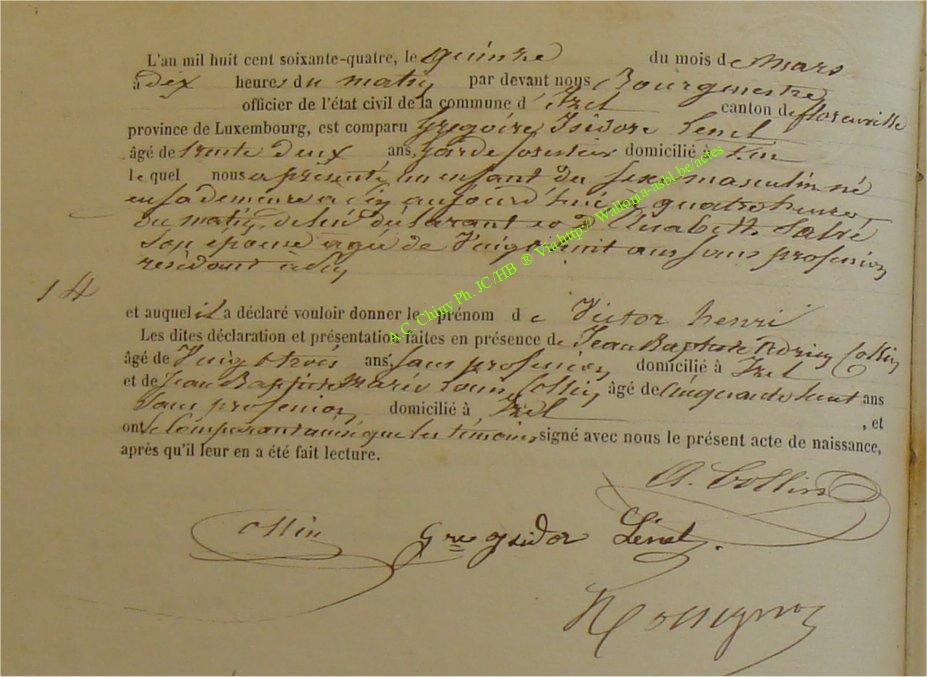 L'an mil huit cent soixante-quatre, le quinze du mois de Mars
à dix heures du matin par devant nous Bourgmestre
officier de l'état civil de la commune d' Izel canton de florenville
province de Luxembourg, est comparu Gregoire Isidore Lenel
âgé de trente deux ans, garde forestier domicilié à
le quel nous a présenté un enfant du sexe masculin né
en sa demeure a aujourd'hui à quatre heures
du matin, de lui déclarant et de Elisabeth
son épouse agée de vingt huit ans sans profession
résidant à
14
et auquel il a déclaré vouloir donner le prénom de Victor henri
Les dites déclaration et présentation faites en présence de Jean Baptiste Adrien Collin
âgé de Vingt trois ans, sans profession domicilié à Izel
et de Jean Baptiste Marie Louis Collin âgé de Cinquante ans
sans profession domicilié à Izel , et
ont le Comparant ainsi que les témoins signé avec nous le présent acte de naissance,
après qu'il leur en a été fait lecture.
A. Collin
Collin Gre ysidor Lénel.
Rossignon
A.C. Chiny Ph. JC/HB ® Via http://Wallonia-asbl.be/actes